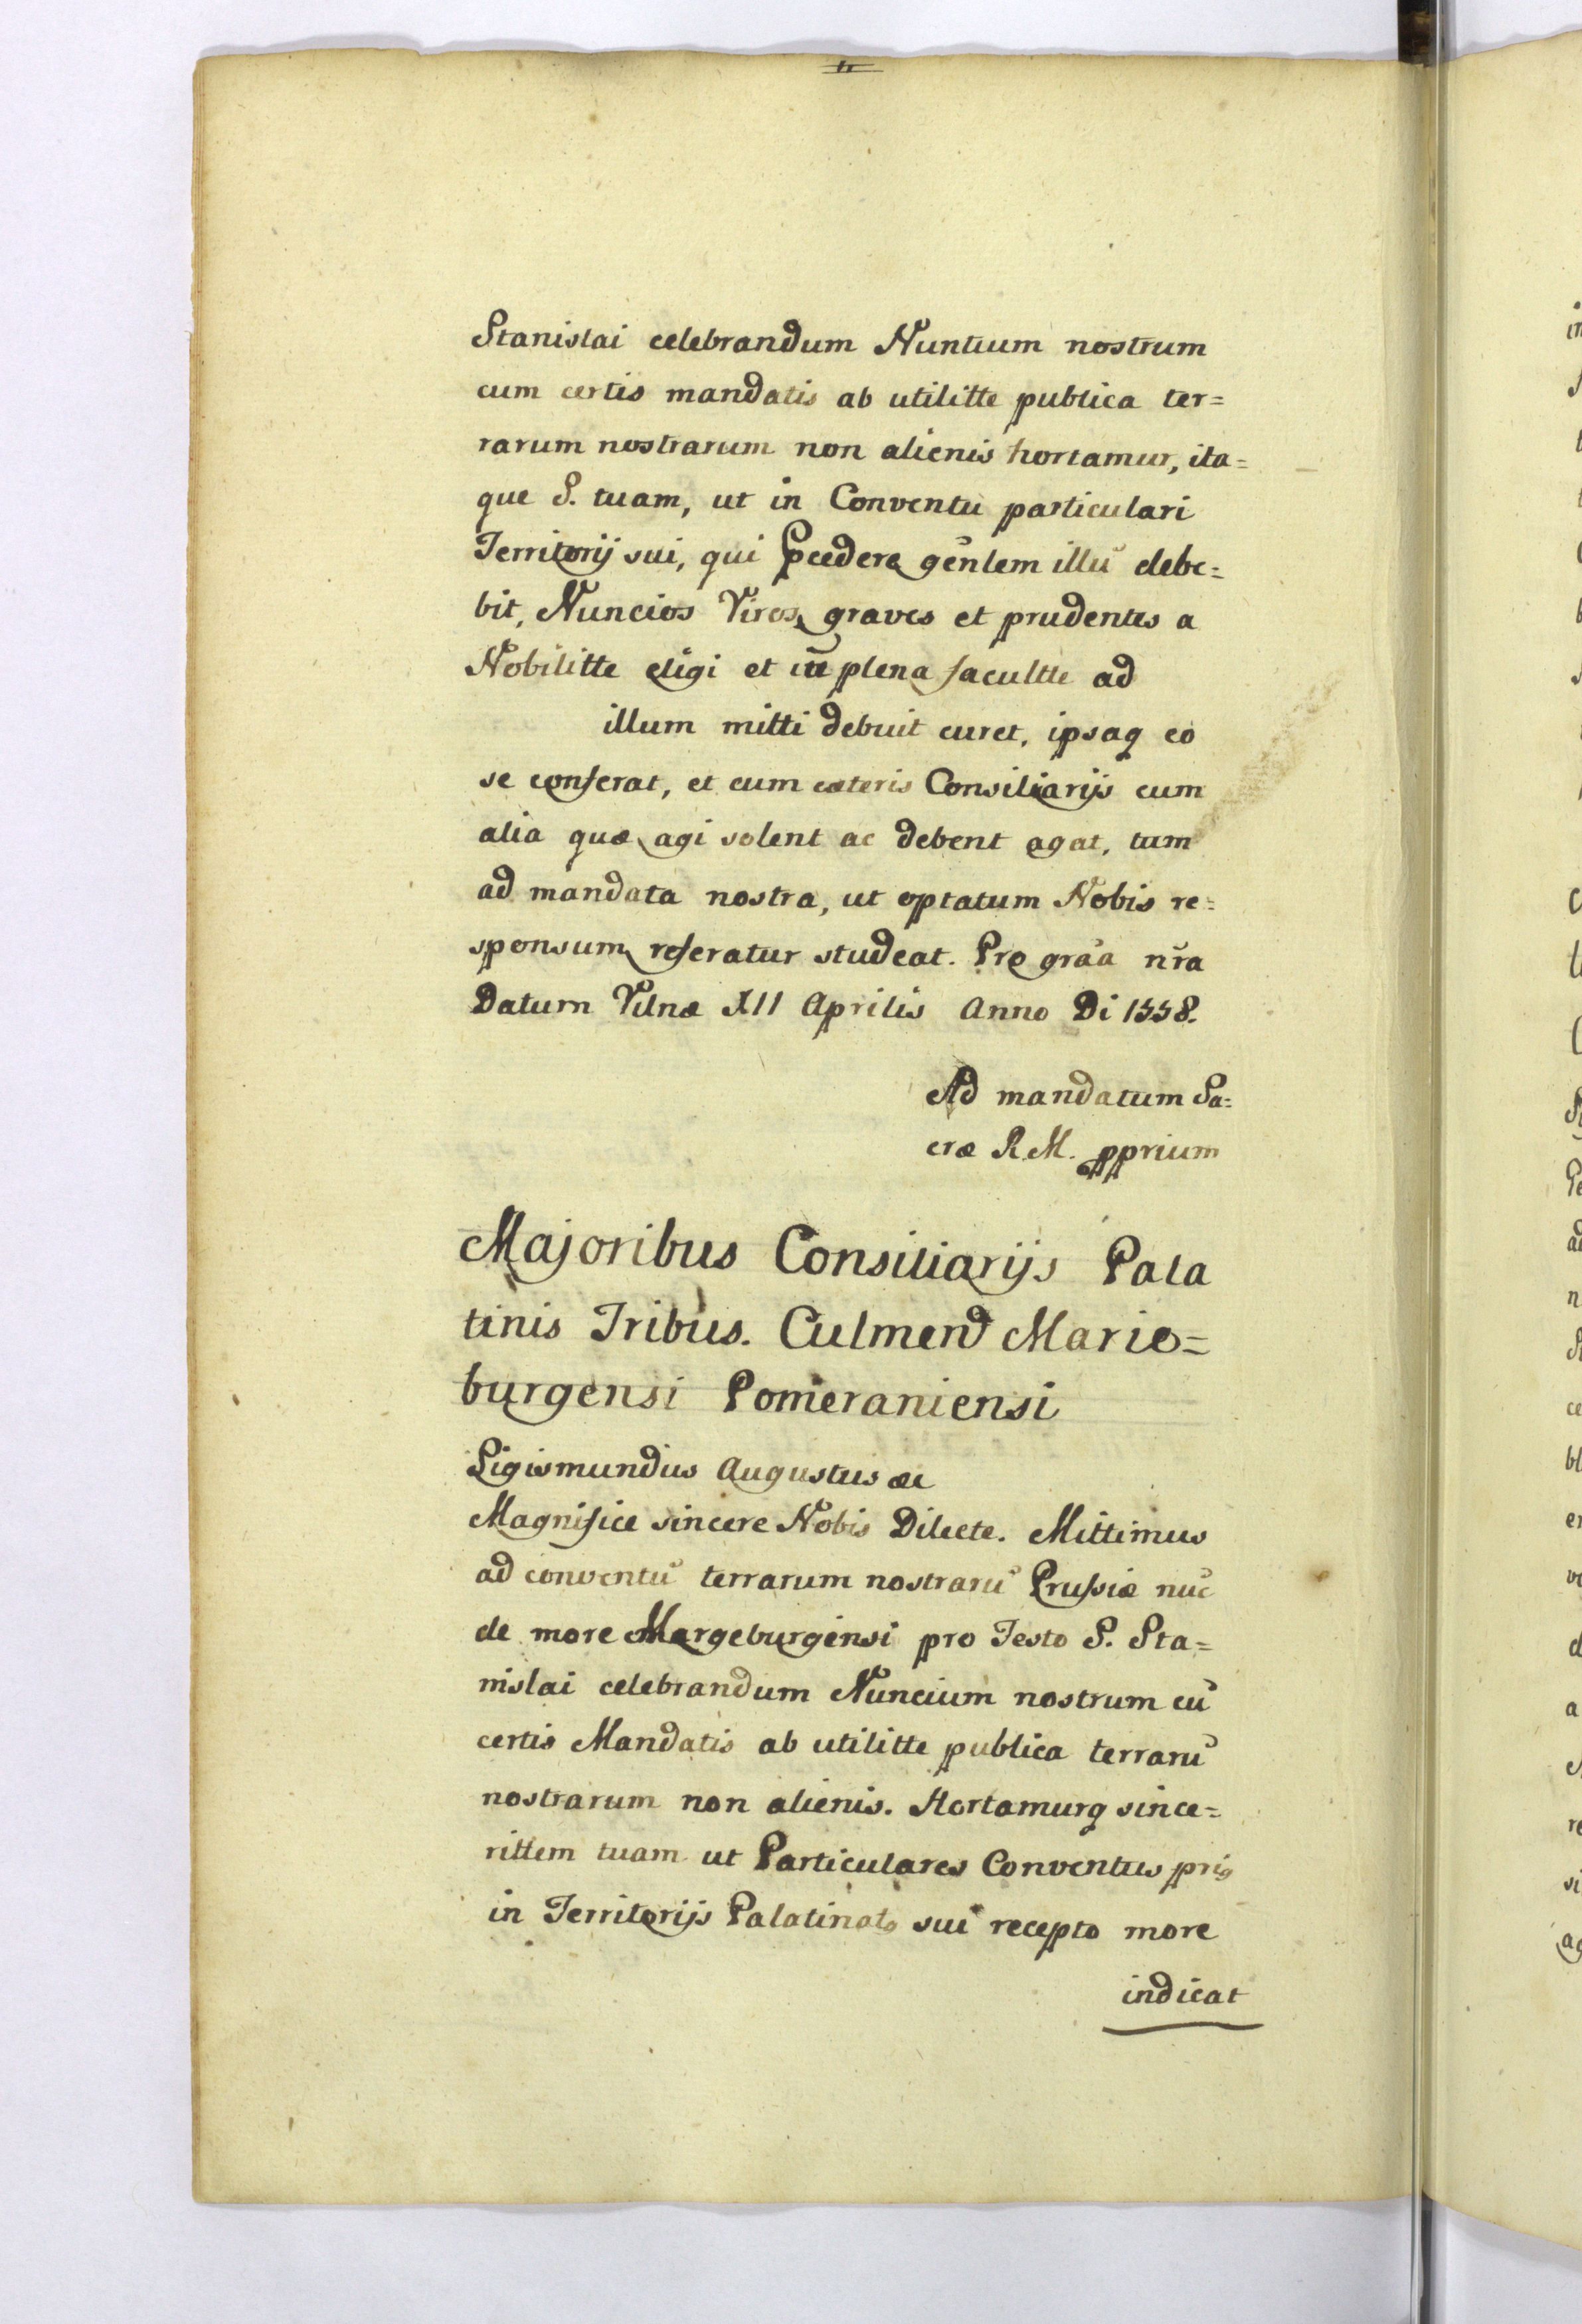 Stanislai celebrandum Nuntium nostrum
cum certis mandatis ab utilitte publica ter=
rarum nostrarum non alienis hortamur, ita=
que S. tuam, ut in Conventu particulari
Territorij sui, qui pcedere gēnlem illū debe=
bit, Nuncios Viros graves et prudentes a
Nobilitte eligi et cū plena facultte ad
illum mitti debuit curet, ipsaq eo
se conferat, et cum cæteris Consiliarijs cum
alia quæ agi solent ac debent agat, tum
ad mandata nostra, ut optatum Nobis re=
sponsum referatur studeat. Pro grāa nr̄a
Datum Vilnæ XII Aprilis Anno Di 1558.
Ad mandatum Sa=
cræ R.M. pprium
Majoribus Consiliarijs Pala
tinis Tribus. Culmen Marie=
burgensi Pomeraniensi
Sigismundus Augustus
Magnifice sincere Nobis Dilecte. Mittimus
ad conventū terrarum nostrarū Prussiæ nūc
de more Margeburgensi pro Festo S. Sta=
nislai celebrandum Nuncium nostrum cū
certis Mandatis ab utilitte publica terrarū
nostrarum non alienis. Hortamurq since=
rittem tuam ut Particulares Conventus priq
in Territorijs Palatinats sui recepto more
indicat